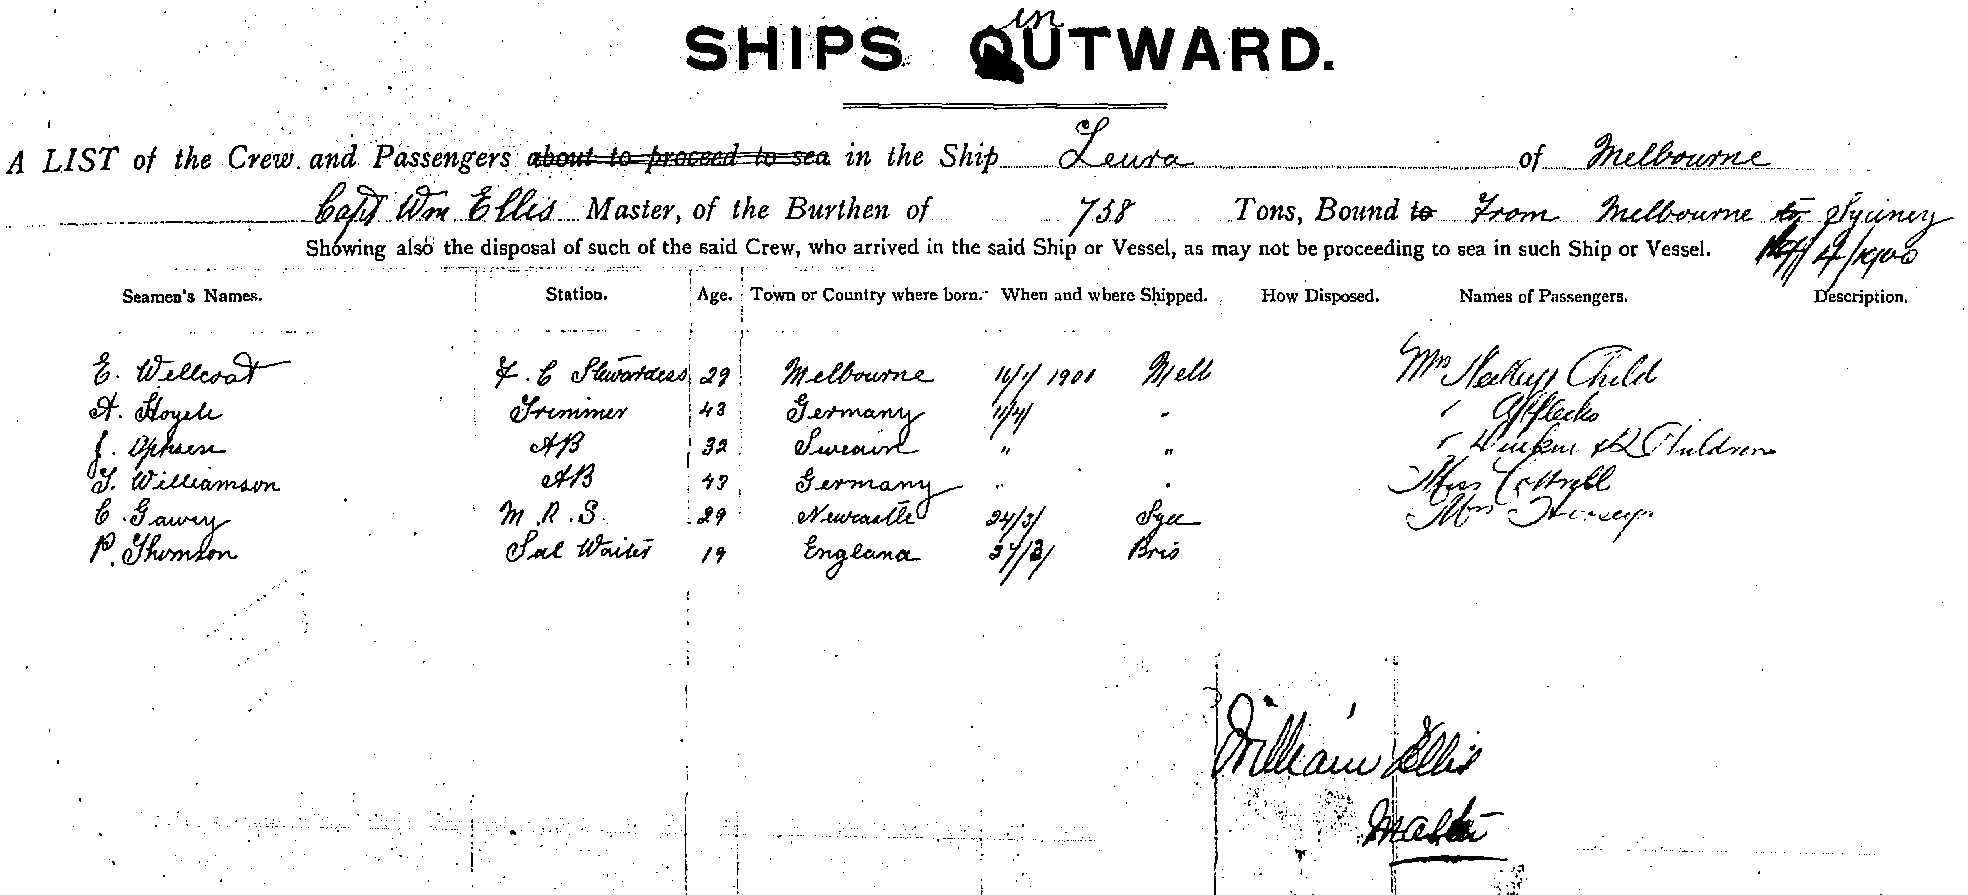 SHIPS in OUTWARD.
A LIST of the Crew and Passengers about to proceed to sea in the Ship Leura of Melbourne
Capt Wm Ellis Master, of the Burthen of 758 Tons, Bound to From Melbourne to Sydney
Showing also the disposal of such of the said Crew, who arrived in the said Ship or Vessel, as may not be proceeding to sea in such Ship or Vessel. 4/1900
Seamen's Names. Station. Age. Town or Country where born. When and where Shipped. How Disposed. Names of Passengers. Description.
E. Wellcoat F. C Stewardess 29 Melbourne Melb Mrs Child
A. Trimmer 43 Germany 11/4/ "
J. AB 32 Sweain " " & 2 Children
T. Williamson AB 43 Germany " " Miss Cottrell
C. M. R. S. 29 Newcastle 24/3/ Syd
P. Thomson Sal Waiter 19 England Bris
William Ellis
Master